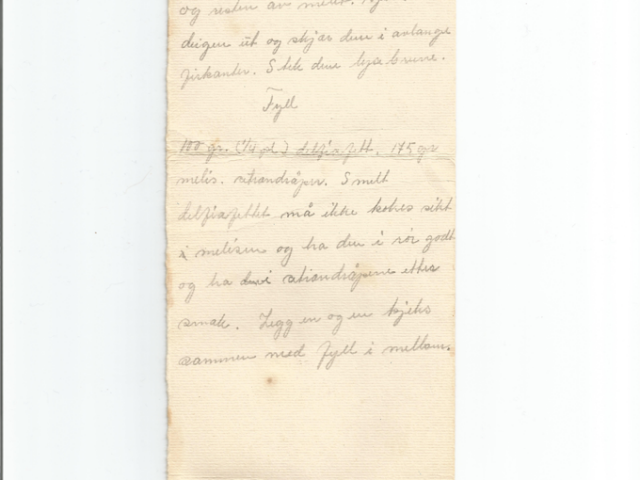 og resten av melet.
deigen ut og skjær dem i avlange
firkanter. Stek dem lyse brune.
Fyll
100 gr. (1/4 pd.) delfiafett. 175 gr
melis. sitrondråper. Smelt
delfiafettet må ikke kokes sikt
i melisen og ha den i rør godt
og ha i sitrondråpene etter
smak. Legg en og en kjeks
sammen med fyll i mellom.